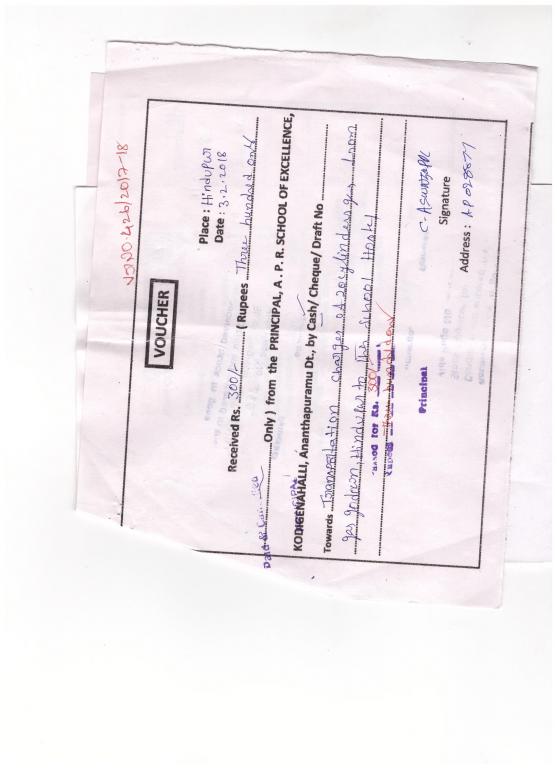 V.NO. 426/2017-18
VOUCHER
Place : Hindupur
Date : 3.2.2018
Received Rs. 300/- ( Rupees Three hundred only
Only ) from the PRINCIPAL, A . P. R. SCHOOL OF EXCELLENCE,
KODIGENAHALLI, Ananthapuramu Dt., by Cash/ Cheque/ Draft No
Towards Transportation charges of 20 cylinders gas from
gas godown, Hindupur to the school Hostel
Passed for Rs. 300/-
Principal
Signature
Address :